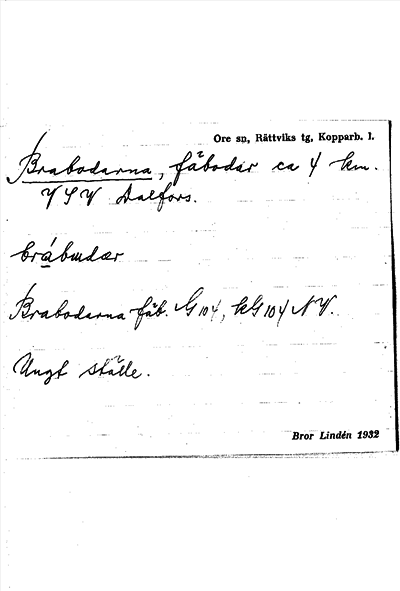 Ore sn, Rättviks tg, Kopparb. l.
Brabodarna, fäbodar ca 4 km.
VSV Dalfors.
Brabodarna fäb. G 104, kG 104 NV.
Ungt ställe.
Bror Lindén 1932